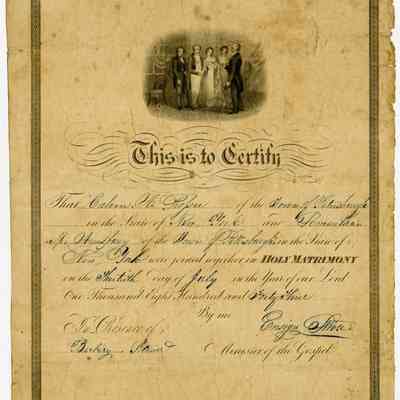 This is to Certify
That Calvin of the Town of
in the State of New York and
of the Town of in the State of
New York were joined together in HOLY MATRIMONY
on the Thirtieth day of July in the Year of our Lord
One Thousand Eight Hundred and Forty Nine
By me
In Presence of Ensign Stone
Minister of the Gospel